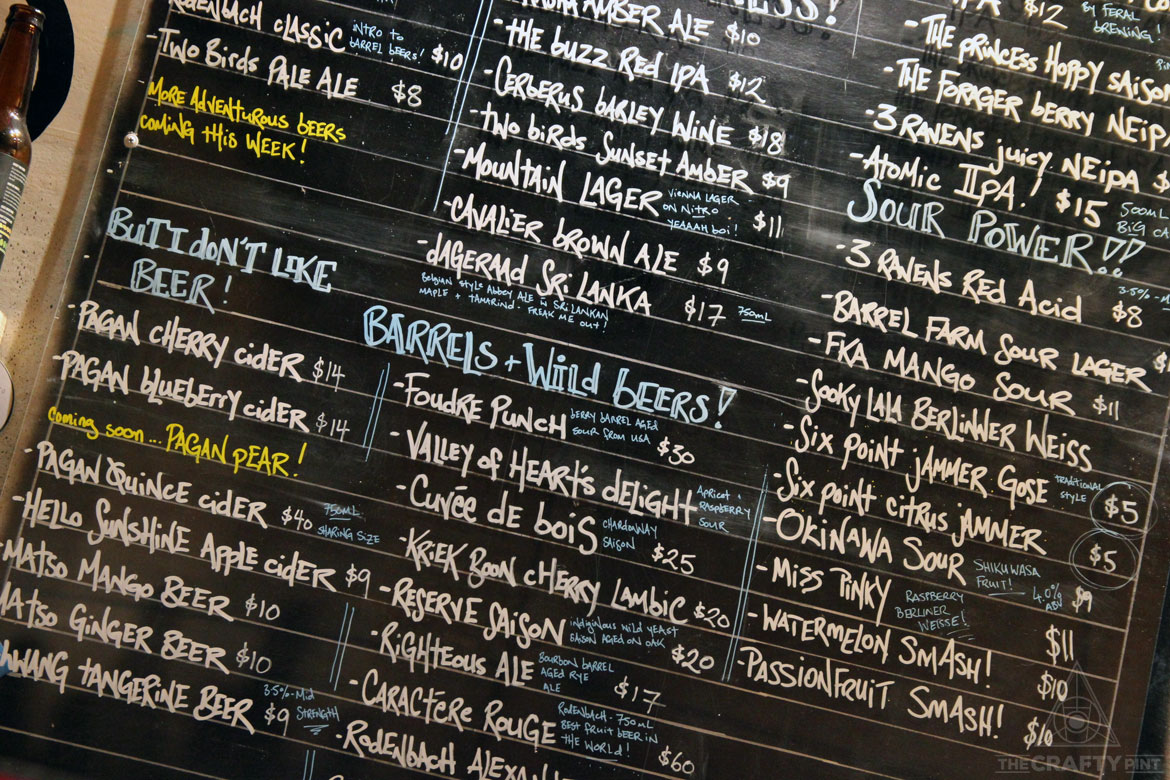 Rodenbach Classic INTRO TO BARREL BEERS! $10
-Two Birds PALE ALE $8
MORE ADVENTUROUS BEERS
COMING THIS WEEK!
BUT I DON'T LIKE
BEER!
-PAGAN CHERRY CIDER $14
-PAGAN blueberry CIDER $14
Coming soon... PAGAN PEAR!
-PAGAN QUINCE CIDER $40 750ML SHARING SIZE
-HELLO SUNSHINE Apple CIDER $9
-MATSO MANGO BEER $10
MATSO GINGER BEER $10
TANGERINE BEER $9 3.5%-Mid STRENGTH
AMBER ALE $10
-THE buzz Red IPA $12
-CERBERUS BARLEY WINE $18
-TWO BIRDS SUNSET AMBER $9
-MOUNTAIN LAGER VIENNA LAGER ON NITRO YEAAAH boi! $11
-CAVALIER BROWN ALE $9
-DAGERAAD SRI LANKA $17 750mL
Belgian STYLE Abbey ALE w SRI LANKAN
MAPLE + TAMARIND - FREAK ME OUT!
BARRELS + WILD BEERS!
-FOUDRE PUNCH BERRY BARREL AGED SOUR FROM USA $30
-VALLEY OF HEART'S DELIGHT APRICOT + RASPBERRY SOUR
-CUVÉE DE BOIS CHARDONNAY SAISON $25
-KRIEK BOON CHERRY LAMBIC $20
-RESERVE SAISON INDIGINOUS WILD YEAST SAISON AGED ON OAK $20
-RIGHTEOUS ALE BOURBON BARREL AGED RYE ALE $17
-CARACTÈRE ROUGE RODENBACH - 750ML BEST FRUIT BEER IN THE WORLD! $60
-RODENBACH
$12 BY FERAL BREWING!
-THE PRINCESS HOPPY SAISON
-THE FORAGER BERRY NEIPA
-3 RAVENS JUICY NEIPA
-ATOMIC IIPA! $15 500ML BIG
SOUR POWER!!
-3 RAVENS Red Acid $8 3.5%
-BARREL FARM SOUR LAGER
-FKA MANGO SOUR $11
-SOOKY LALA BERLINNER WEISS
-SIX POINT JAMMER GOSE TRADITIONAL STYLE $5
-SIX POINT CITRUS JAMMER $5
-OKINAWA SOUR SHIKUWASA FRUIT! 4.0% ABV $9
-MISS PINKY RASPBERRY BERLINER WEISSE! $11
-WATERMELON SMASH! $10
-PASSIONFRUIT SMASH! $10
THE CRAFTY PINT